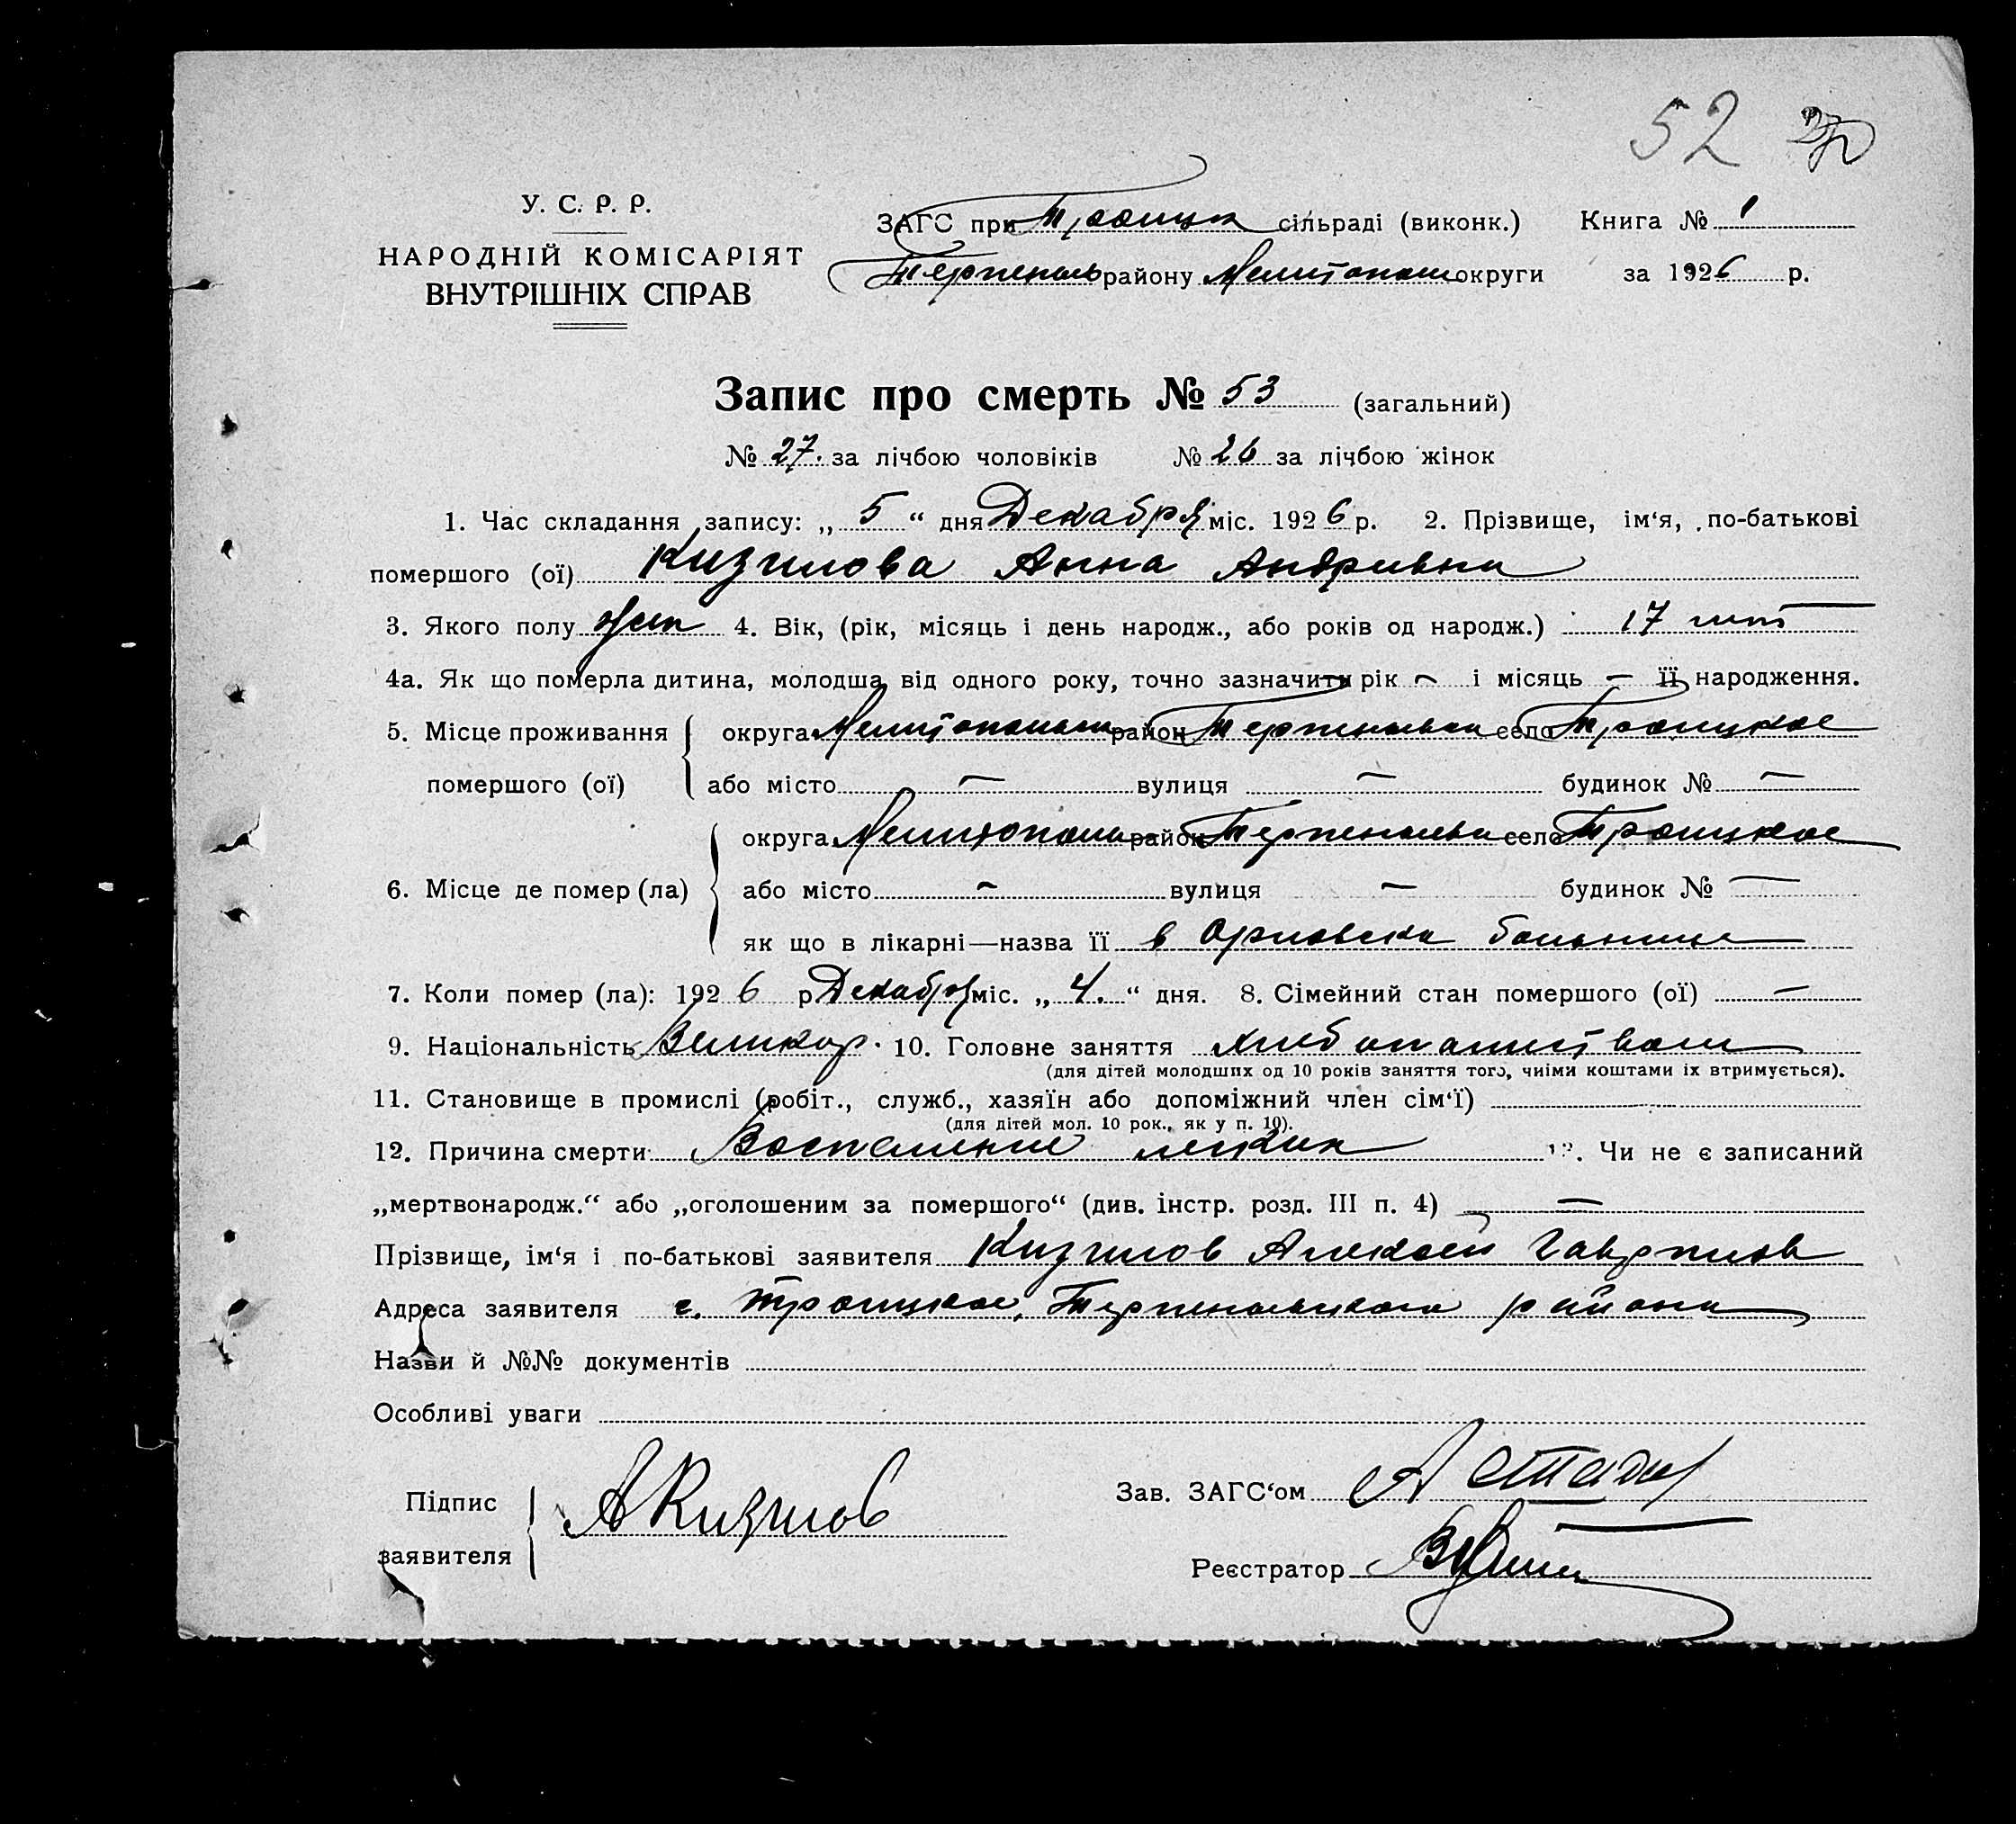 52
У. С. Р. Р.
НАРОДНІЙ КОМІСАРІЯТ
ВНУТРІШНІХ СПРАВ
ЗАГС при Троицк сільраді (виконк.) Книга № 1
Терпеньев району Мелитопол округи за 1926 р.
Запис про смерть № 53 (загальний)
№ 27. за лічбою чоловіків № 26 за лічбою жінок
1. Час складання запису: „ 5 “ дня Декабря міс. 1926 р. 2. Прізвище, ім‘я, по-батькові
помершого (ої) Кизилова Анна Андриевна
3. Якого полу жен 4. Вік, (рік, місяць і день народж., або років од народж.) 17 лет
4а. Як що померла дитина, молодша від одного року, точно зазначити рік — і місяць — її народження.
5. Місце проживання округа Мелитопольск район Терпеньевск село Троицкое
помершого (ої) або місто — вулиця — будинок № —
округа Мелитополь район Терпеньевск село Троицкое
6. Місце де помер (ла) або місто — вулиця — будинок № —
як що в лікарні—назва її в Орловска больнице
7. Коли помер (ла): 1926 р Декабря міс. „ 4. “ дня. 8. Сімейний стан помершого (ої) —
9. Національність Великор. 10. Головне заняття хлебопашеством
(для дітей молодших од 10 років заняття того, чиїми коштами їх втримується).
11. Становище в промислі (робіт., служб., хазяїн або допоміжний член сім‘ї)
(для дітей мол. 10 рок., як у п. 10).
12. Причина смерти Воспаление легких 13. Чи не є записаний
„мертвонародж.“ або „оголошеним за помершого“ (див. інстр. розд. III п. 4) —
Прізвище, ім‘я і по-батькові заявителя Кизилов Алексей Гаврилов
Адреса заявителя с. Троицкое, Терпеньевского района
Назви й №№ документів
Особливі уваги
Підпис
заявителя АКизилов
Зав. ЗАГС‘ом
Реєстратор